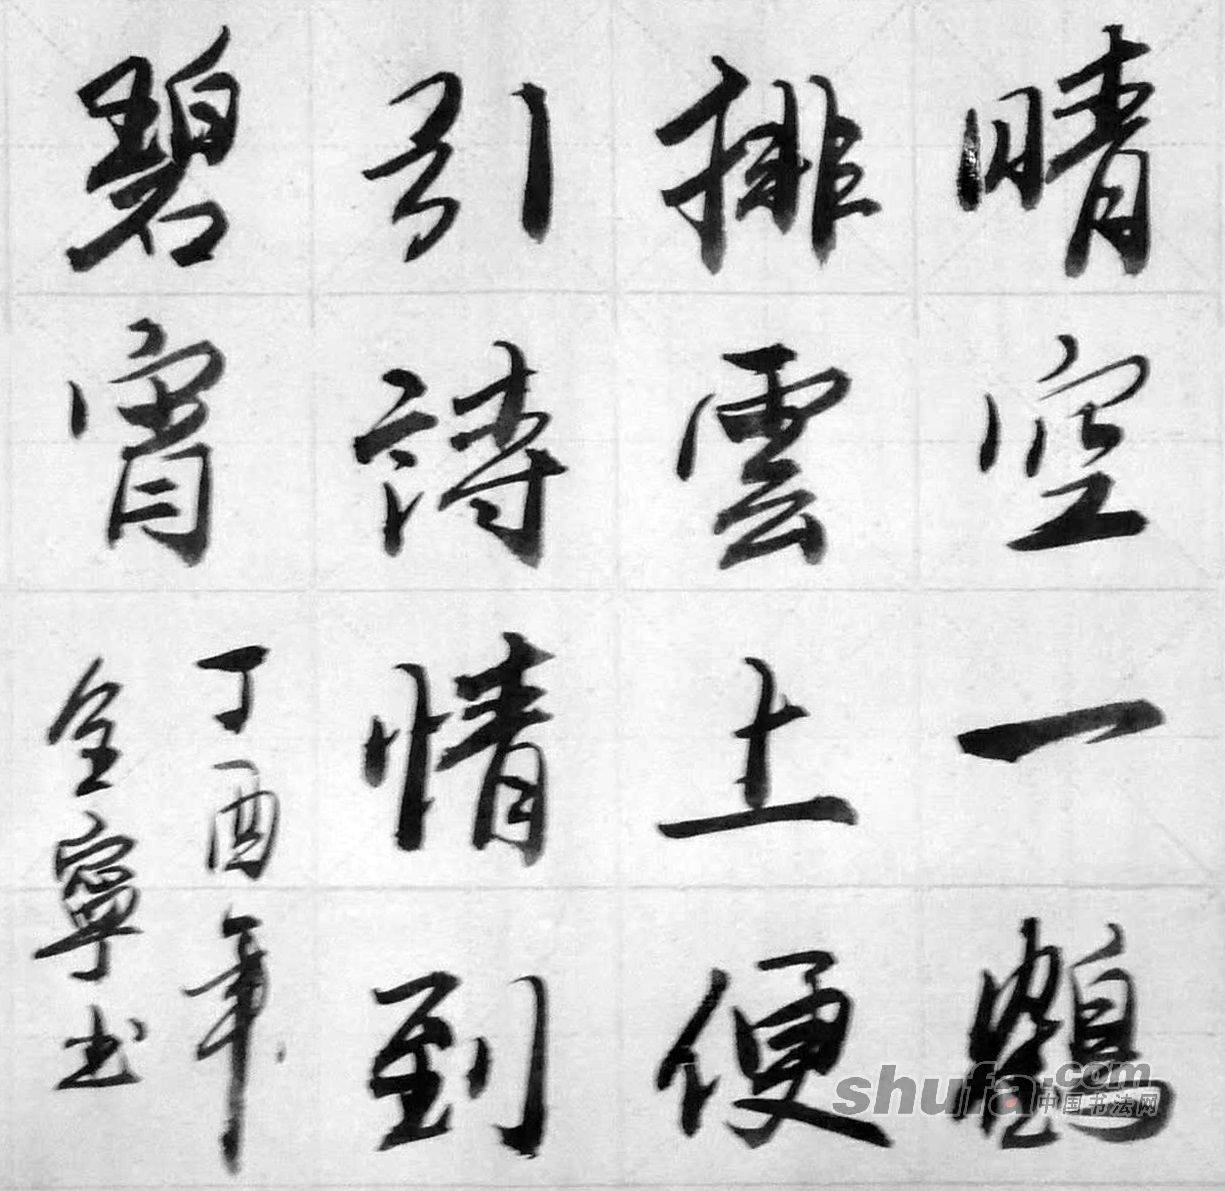 晴空一鶴
排雲上便
引詩情到
碧宵
丁酉年
全寧书
shufa.com
中国书法网